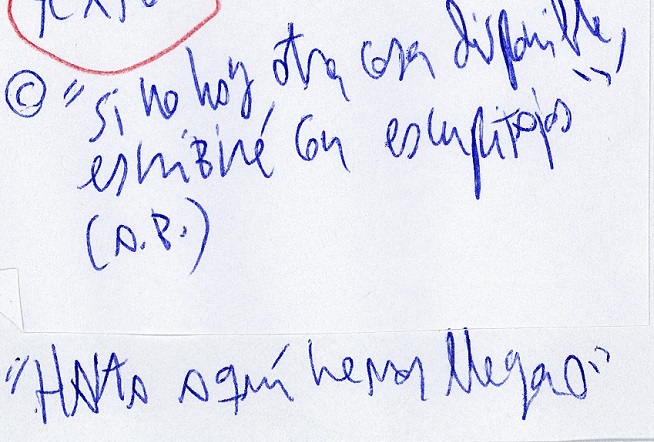 © "Si no hay otra cosa disponible,
escribiré con escupitajos"
(A.B.)
"HASTA aquí hemos llegado"